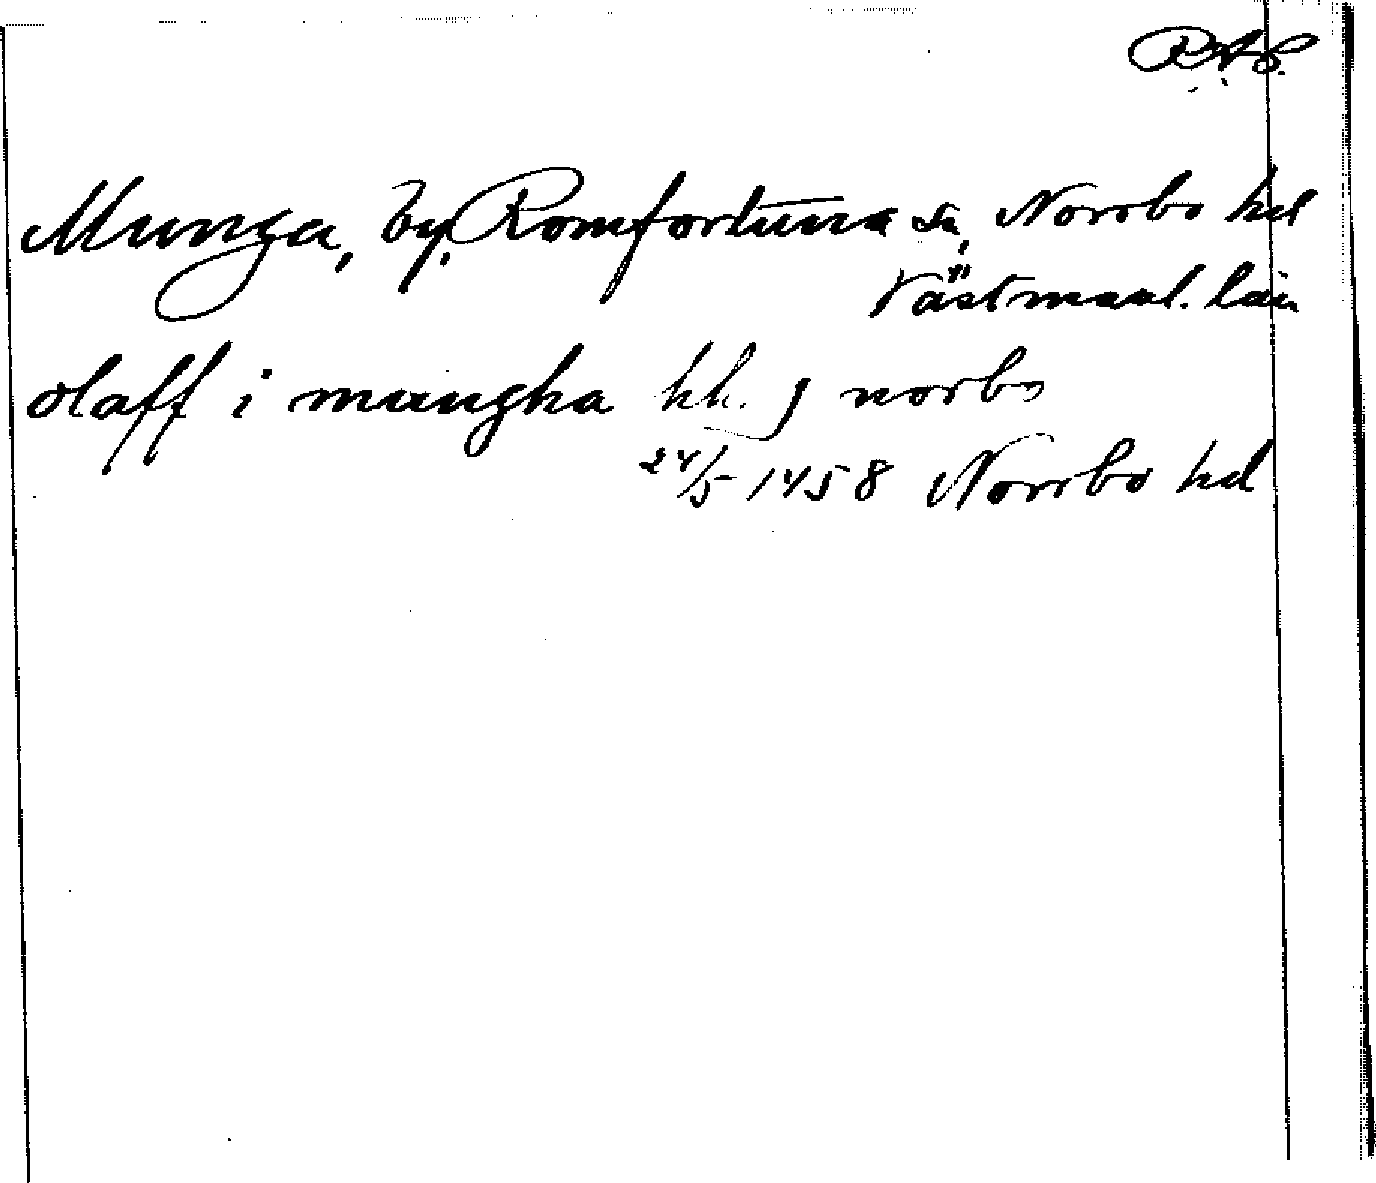 R.A.P.
Munga, by, Romfortuna sn, Norrbo hd
Västmanl. län
olaff i mungha hh. j norbo
24/5 1458 Norrbo hd